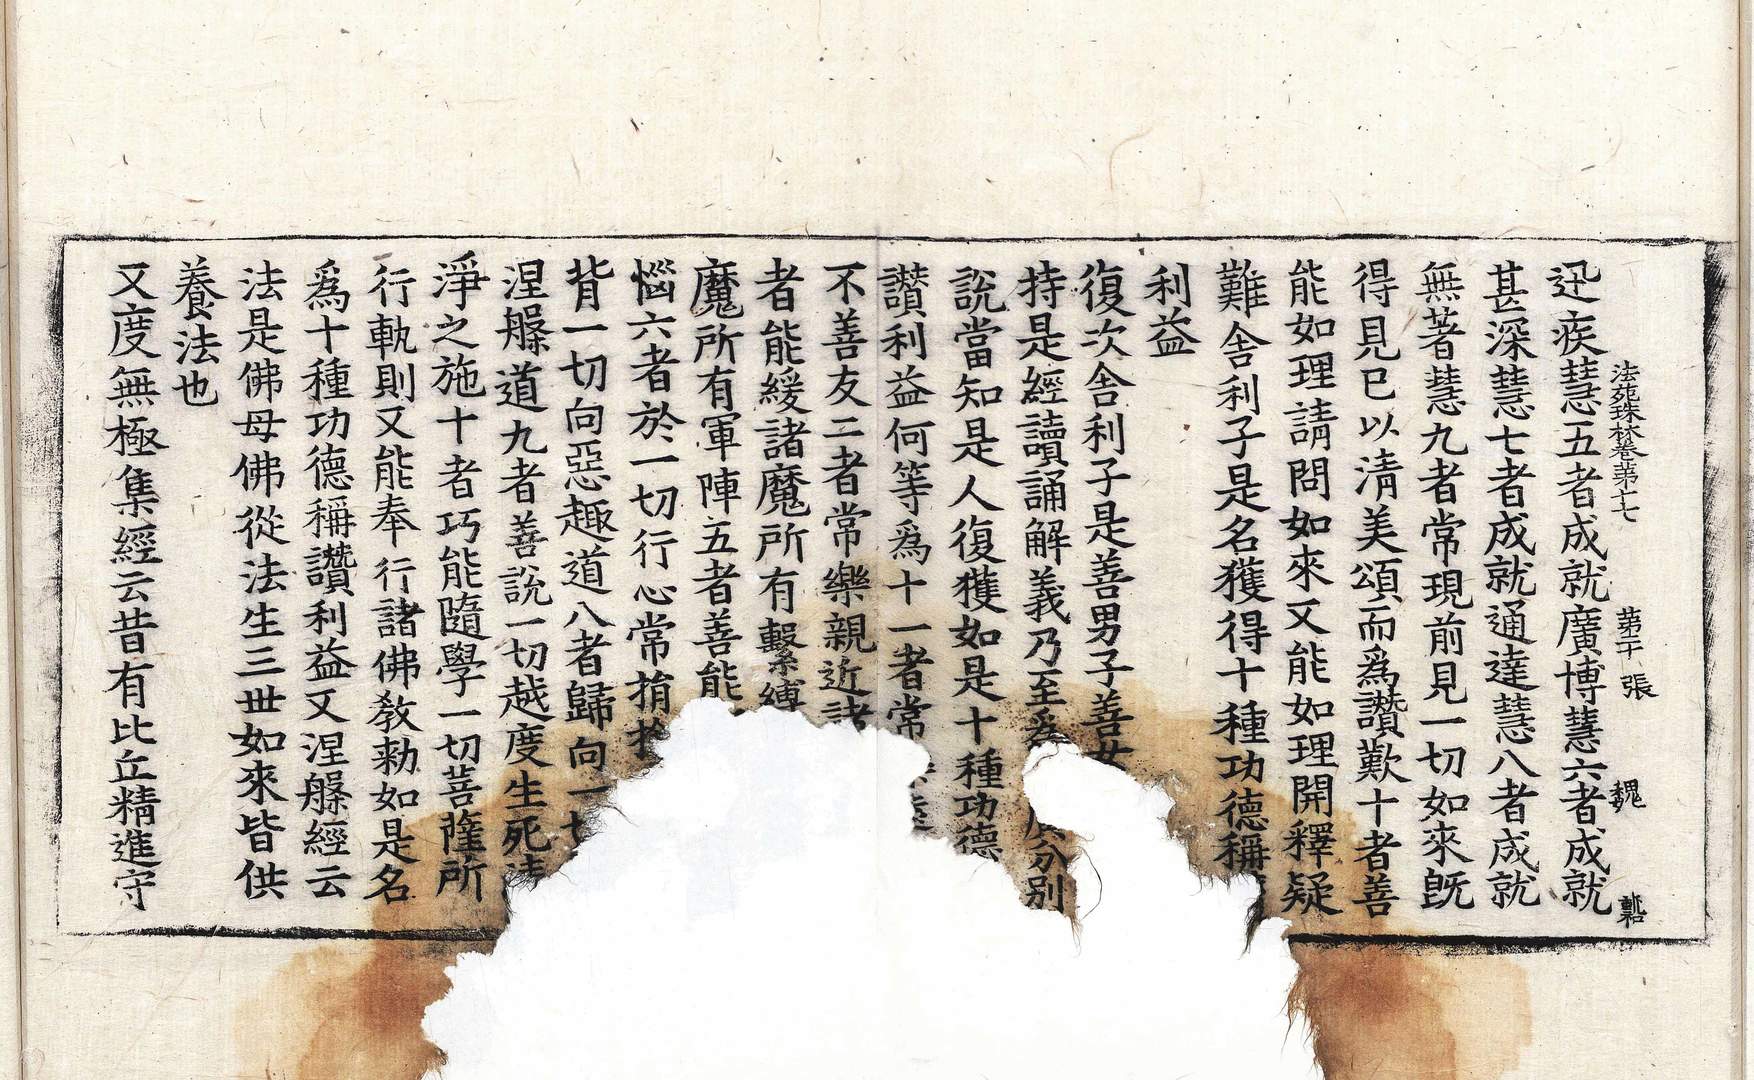 法苑珠林卷第十七 第二十張 魏
迅疾慧五者成就廣博慧六者成就
甚深慧七者成就通達慧八者成就
無著慧九者常現前見一切如來旣
得見已以淸美頌而爲讚歎十者善
能如理請問如來又能如理開釋疑
難舍利子是名獲得十種功德稱
利益
復次舍利子是善男子善女
持是經讀誦解義乃至爲 分別
說當知是人復獲如是十種功德
讚利益何等爲十一者常
不善友二者常樂親近諸
者能緩諸魔所有繫縛
魔所有軍陣五者善能
惱六者於一切行心常捐捨
背一切向惡趣道八者歸向一切
涅槃道九者善說一切越度生死淸
淨之施十者巧能隨學一切菩薩所
行軌則又能奉行諸佛敎勅如是名
爲十種功德稱讚利益又涅槃經云
法是佛母佛從法生三世如來皆供
養法也
又度無極集經云昔有比丘精進守